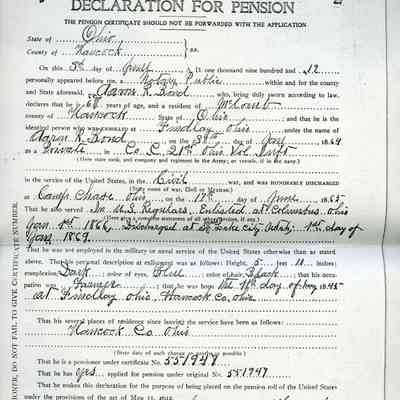 DECLARATION FOR PENSION
THE PENSION CERTIFICATE SHOULD NOT BE FORWARDED WITH THE APPLICATION
State of Ohio
County of Hancock } ss.
On this 5th day of June A. D. one thousand nine hundred and 12
personally appeared before me, a Notary Public within and for the county
and State aforesaid, Aaron R. Bond who, being duly sworn according to law,
declares that he is years of age, and a resident of McComb
county of Hancock State of Ohio; and that he is the
identical person who was ENROLLED at Findlay Ohio under the name of
Aaron R. Bond on the day of 1864
as a Private in Co. C. 21st Ohio Vol. Inft
(Here state rank, and company and regiment in the Army; or vessels, if in the navy.)
in the service of the United States, in the Civil war, and was HONORABLY DISCHARGED
(State name of war, Civil or Mexican.)
at Camp Chase Ohio on the 17th day of June 1865
that he also served In U.S. Regulars. Enlisted at Columbus Ohio
Jan. 1st 1866, Discharged at Lake City 1st day of
Jany 1869.
That he was not employed in the military or naval service of the United States otherwise than as stated
above. That his personal description at enlistment was as follows: Height, 5 feet 10 inches;
complexion, Dark; color of eyes, Blue; color of hair, Black; that his occu-
pation was Farmer; that he was born the 16th day of 1845
at Findlay Ohio, Hancock Co, Ohio
That his several places of residence since leaving the service have been as follows:
Hancock Co Ohio
(State date of each change, as nearly as possible.)
That he is a pensioner under certificate No. 551947
That he has yes applied for pension under original No. 551947
That he makes this declaration for the purpose of being placed on the pension roll of the United States
under the provisions of the act of May 11, 1912.
DO NOT FAIL TO GIVE CERTIFICATE NUMBER.